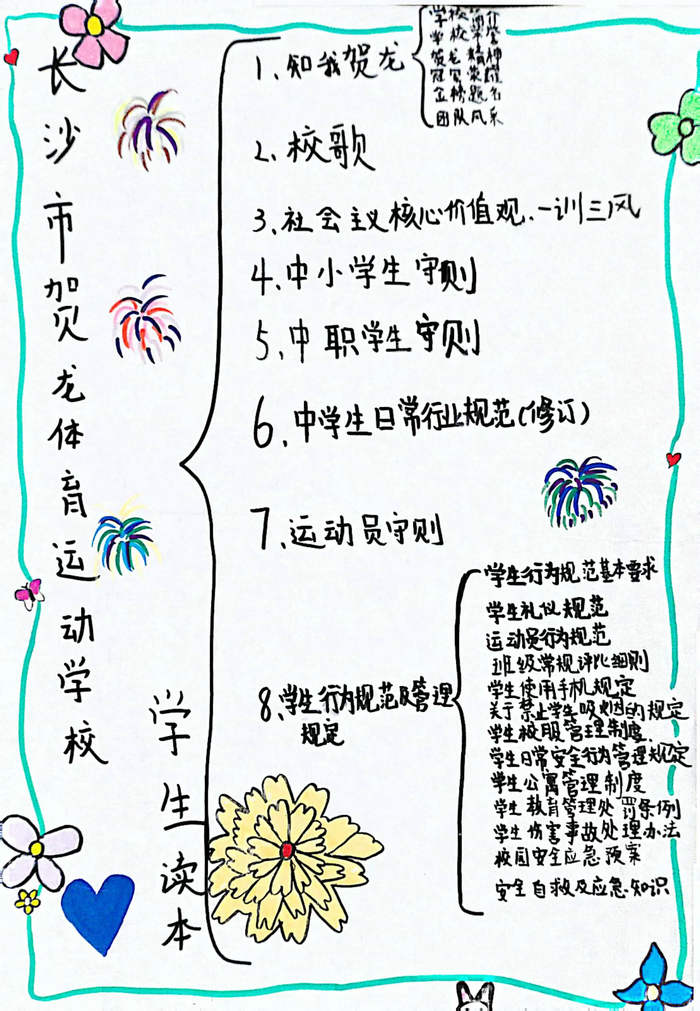 长沙市贺龙体育运动学校
学生读本
1、知我贺龙
学校简介
学校
贺龙精神
冠军荣耀
金榜题名
团队风采
2、校歌
3、社会主义核心价值观、一训三风
4、中小学生守则
5、中职学生守则
6、中学生日常行业规范(修订)
7、运动员守则
8、学生行为规范及管理
规定
学生行为规范基本要求
学生礼仪规范
运动员行为规范
班级常规评比细则
学生使用手机规定
关于禁止学生吸烟的规定
学生校服管理制度
学生日常安全行为管理规定
学生公寓管理制度
学生教育管理处罚条例
学生伤害事故处理办法
校园安全应急预案
安全自救及应急知识